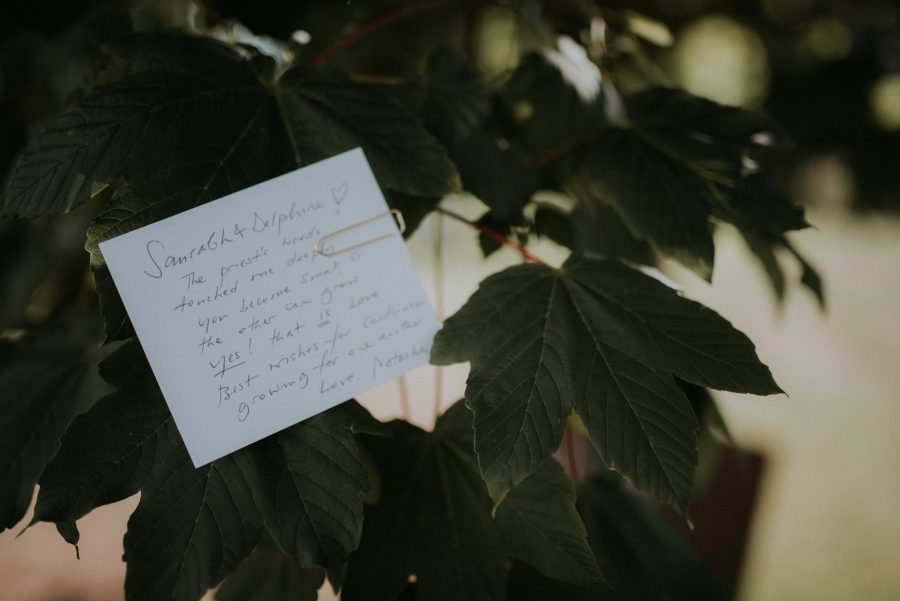 Saurabh & Delphine! ♡
The priest's words
touched me deeply.
you become small, so
the other can grow...
yes! that is Love
Best wishes for continuous
growing for one another
Love, Natasha